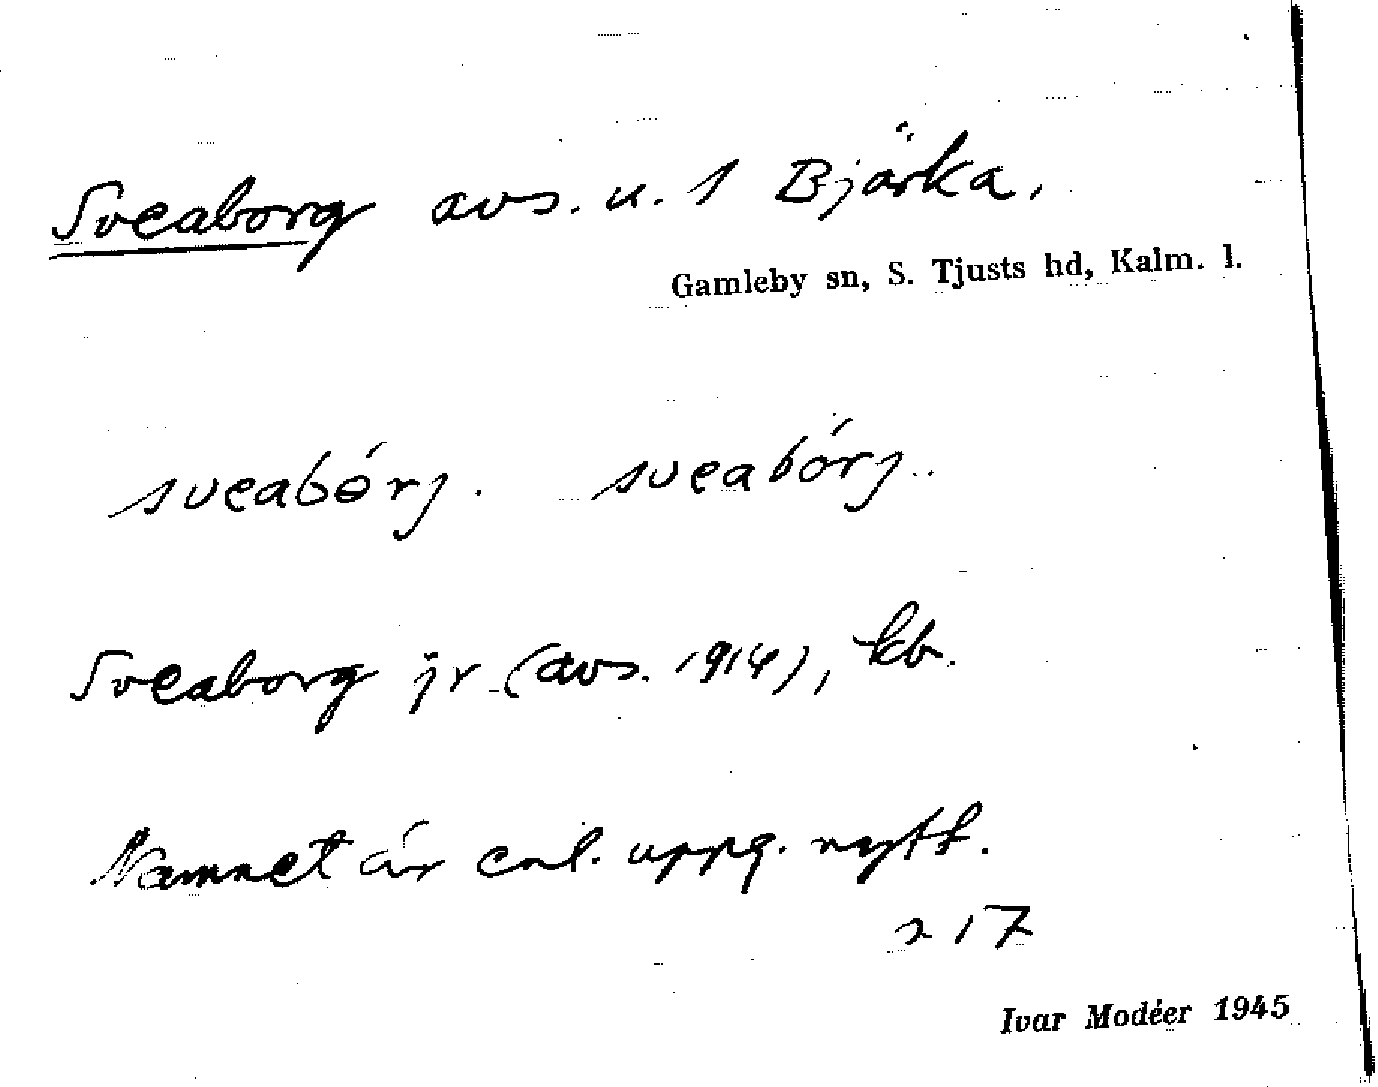 Sveaborg avs. u. 1 Björka.
Gamleby sn, S. Tjusts hd, Kalm. l.
sveabórj. sveabórj..
Sveaborg jr (avs. 1914), kb.
Namnet är enl. uppg. nytt.
217
Ivar Modéer 1945